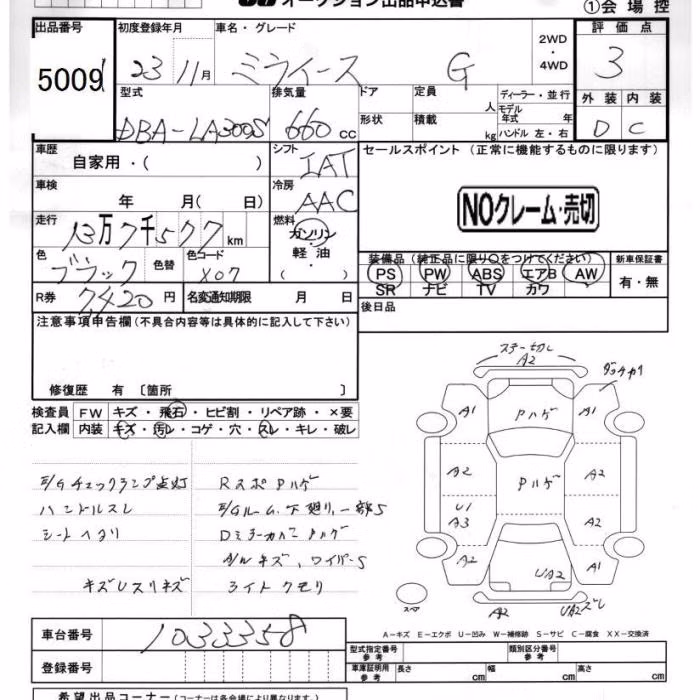 オークション出品申込書
①会場控
出品番号 初度登録年月 車名・グレード 2WD ・ 4WD 評価点
5009 23 11月 ミライース G 3
型式 排気量 ドア 定員 人 ディーラー・並行 外装 内装
モデル年式 年
DBA-LA300S 660cc 形状 積載 kg ハンドル 左・右 D C
車歴 自家用・( ) シフト IAT セールスポイント (正常に機能するものに限ります)
車検 年 月( 日) 冷房 AAC
NOクレーム・売切
走行 13万7千577km 燃料 ガソリン・軽油・( )
色 ブラック 色替 色コード X07
装備品 (純正品に限り○をつけてください) 新車保証書
PS PW ABS エアB AW 有・無
SR ナビ TV カワ
R券 7,420円 名変通知期限 月 日 後日品
注意事項申告欄 (不具合内容等は具体的に記入して下さい)
修復歴 有 〔箇所 〕
検査員 FW キズ・飛石・ヒビ割・リペア跡・×要
記入欄 内装 キズ・汚レ・コゲ・穴・スレ・キレ・破レ
E/Gチェックランプ点灯 RスポPハゲ
ハンドルスレ E/Gルーム、下廻り、一部S
シートヘタリ Dミラーカバーハゲ
A/Wキズ、ワイパーS
キズUスリキズ ライトクモリ
ステー切レ
A2
A1 Pハゲ A1
A2 Pハゲ A2
U1
A3 A2
A2 UA2 A2
スペア A2 UA2ズレ
A－キズ E－エクボ U－凹み W－補修跡 S－サビ C－腐食 XX－交換済
車台番号 1033358
登録番号
型式指定番号 参考 類別区分番号 参考
車庫証明用 参考 長さ cm 幅 cm 高さ cm
希望出品コーナー (コーナーは各会場により異なります。)